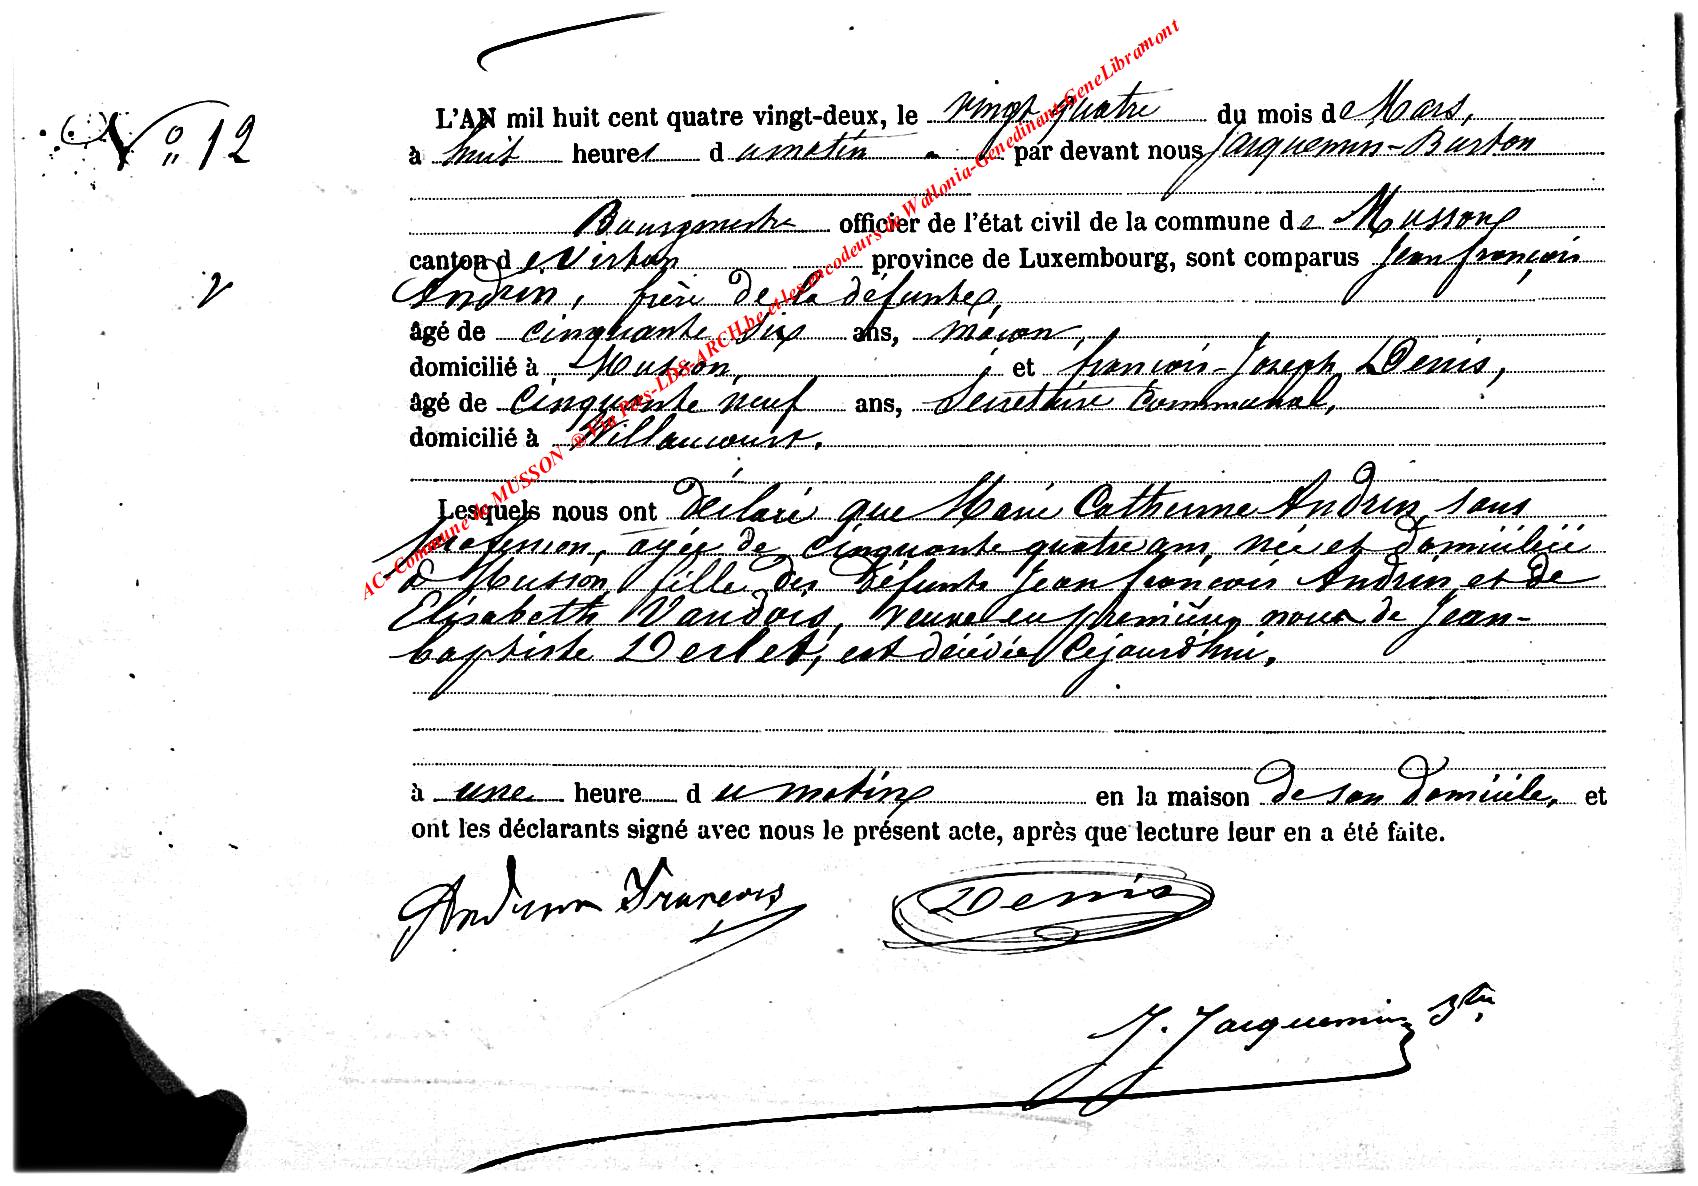 N° 12
L'AN mil huit cent quatre vingt-deux, le vingt quatre du mois de Mars,
à huit heures du matin par devant nous Jacquemin-Burton
Bourgmestre officier de l'état civil de la commune de Musson
canton de Virton province de Luxembourg, sont comparus Jean françois
Andrin, frère de la défunte,
âgé de cinquante six ans, maçon,
domicilié à Musson, et françois-Joseph Denis,
âgé de cinquante neuf ans, Secrétaire communal,
domicilié à Willancourt.
Lesquels nous ont déclaré que Marie Catherine Andrin, sans
profession, âgée de cinquante quatre ans, née et domiciliée
à Musson, fille des défunts Jean françois Andrin et de
Elisabeth Vandois, veuve en premières noces de Jean-
baptiste Derlet, est décédée cejourd'hui,
à une heure du matin en la maison de son domicile, et
ont les déclarants signé avec nous le présent acte, après que lecture leur en a été faite.
Andrin François Denis
J. Jacquemin
AC- Commune de MUSSON ® Via Pros-LDS-ARCH.be et les encodeurs de Wallonia-Genedinant-GeneLibramont